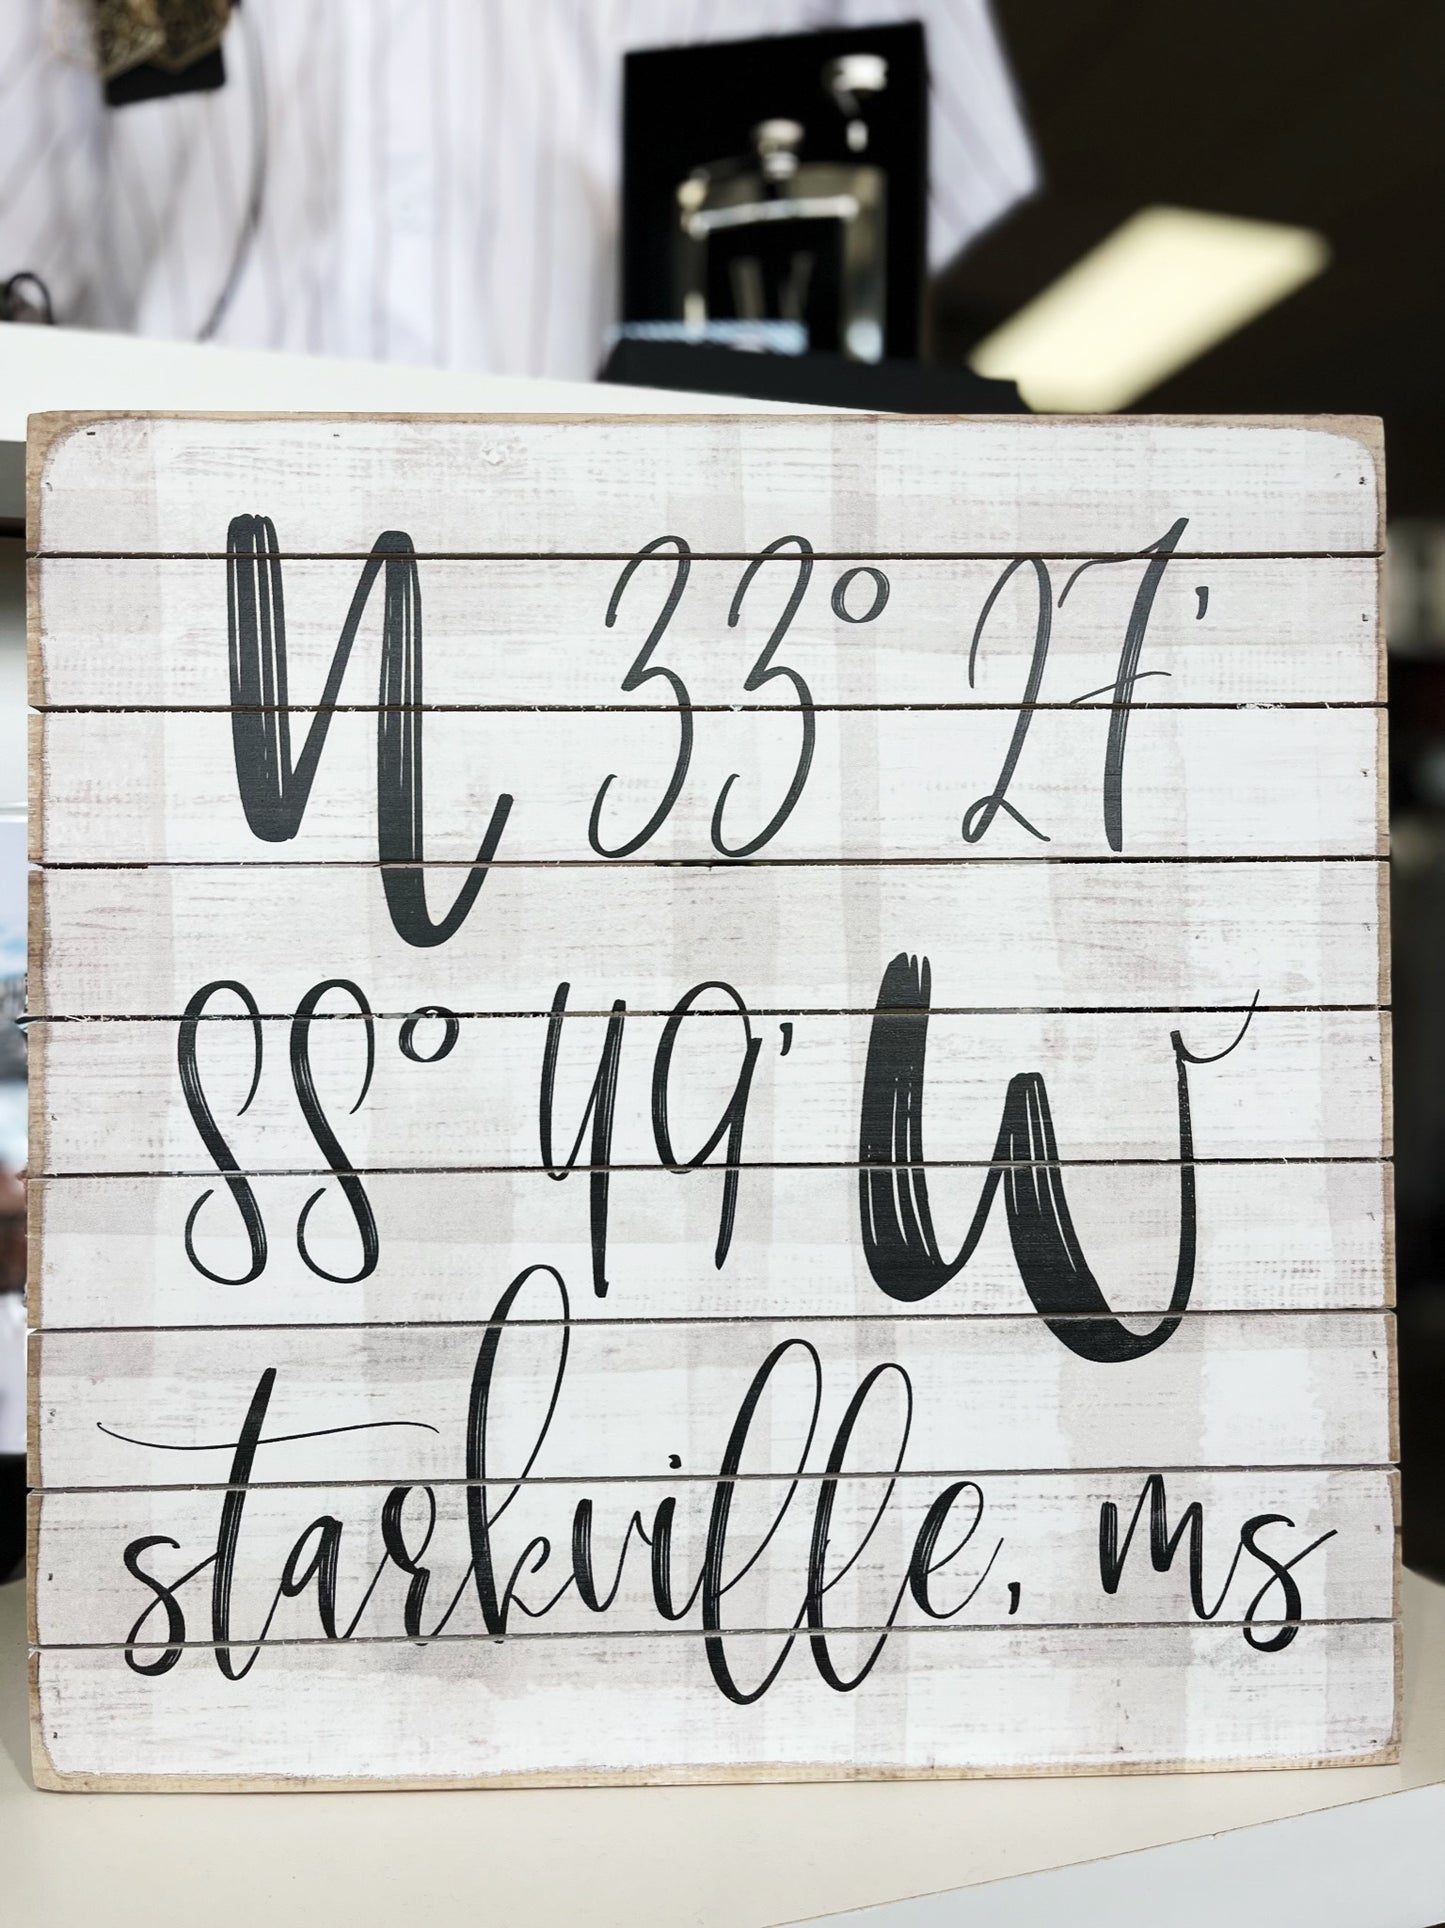 N 33° 27'
88° 49' W
starkville, ms